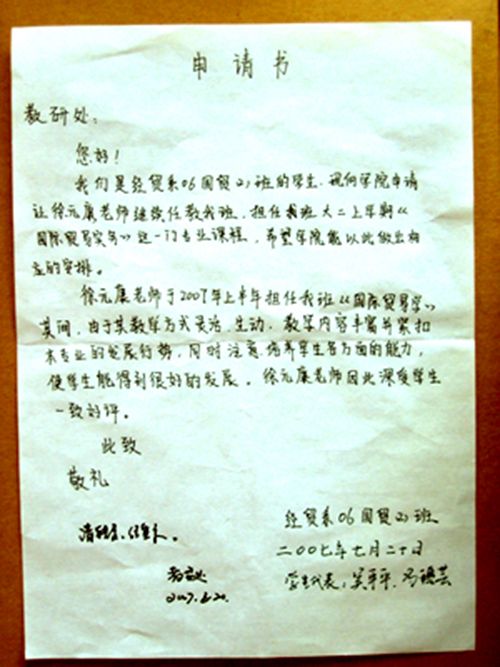 申请书
教研处：
您好！
我们是经贸系06国贸(2)班的学生，现向学院申请
让徐元康老师继续任教我班，担任我班大二上学期《
国际贸易实务》这一门专业课程，希望学院能以此做出相
应的安排。
徐元康老师于2007年上半年担任我班《国际贸易学》，
其间，由于其教学方式灵活、生动，教学内容丰富并紧扣
本专业的发展行势，同时注意培养学生各方面的能力，
使学生能得到很好的发展。徐元康老师因此深受学生
一致好评。
此致
敬礼
经贸系06国贸(2)班
二00七年七月二十日
学生代表：吴平平、冯